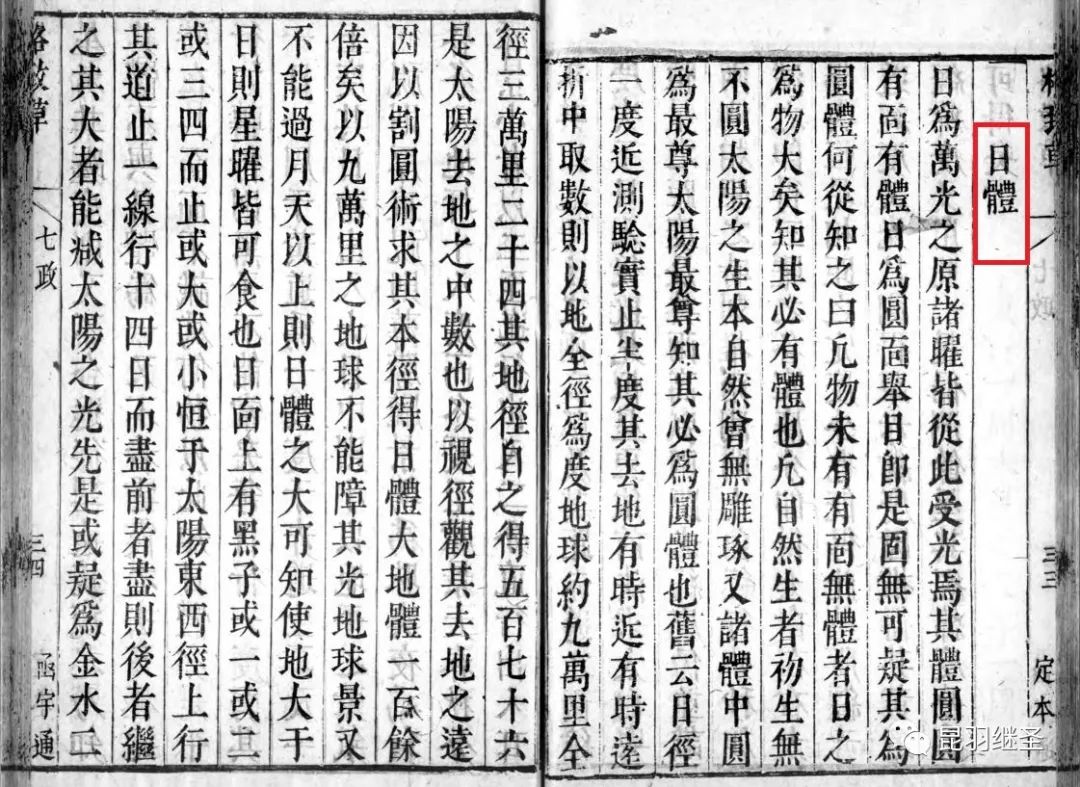 日體
日為萬光之原諸曜皆從此受光焉其體圓圓
有面有體日為圓面舉目即是固無可疑其為
圓體何從知之曰凡物未有有面無體者日之
為物大矣知其必有體也凡自然生者初生無
不圓太陽之生本自然曾無雕琢又諸體中圓
為最尊太陽最尊知其必為圓體也舊云日徑
一度近測驗實止半度其去地有時近有時遠
折中取數則以地全徑為度地球約九萬里全
三三
定本
徑三萬里二千四其地徑自之得五百七十六
是太陽去地之中數也以視徑觀其去地之遠
因以割圓術求其本徑得日體大地體一百餘
倍矣以九萬里之地球不能障其光地球景又
不能過月天以上則日體之大可知使地大于
日則星曜皆可食也日面上有黑子或一或二
或三四而止或大或小恒于太陽東西徑上行
其道止一線行十四日而盡前者盡則後者繼
之其大者能減太陽之光先是或疑為金水二
格致草
七政
三四
函宇通
昆羽继圣